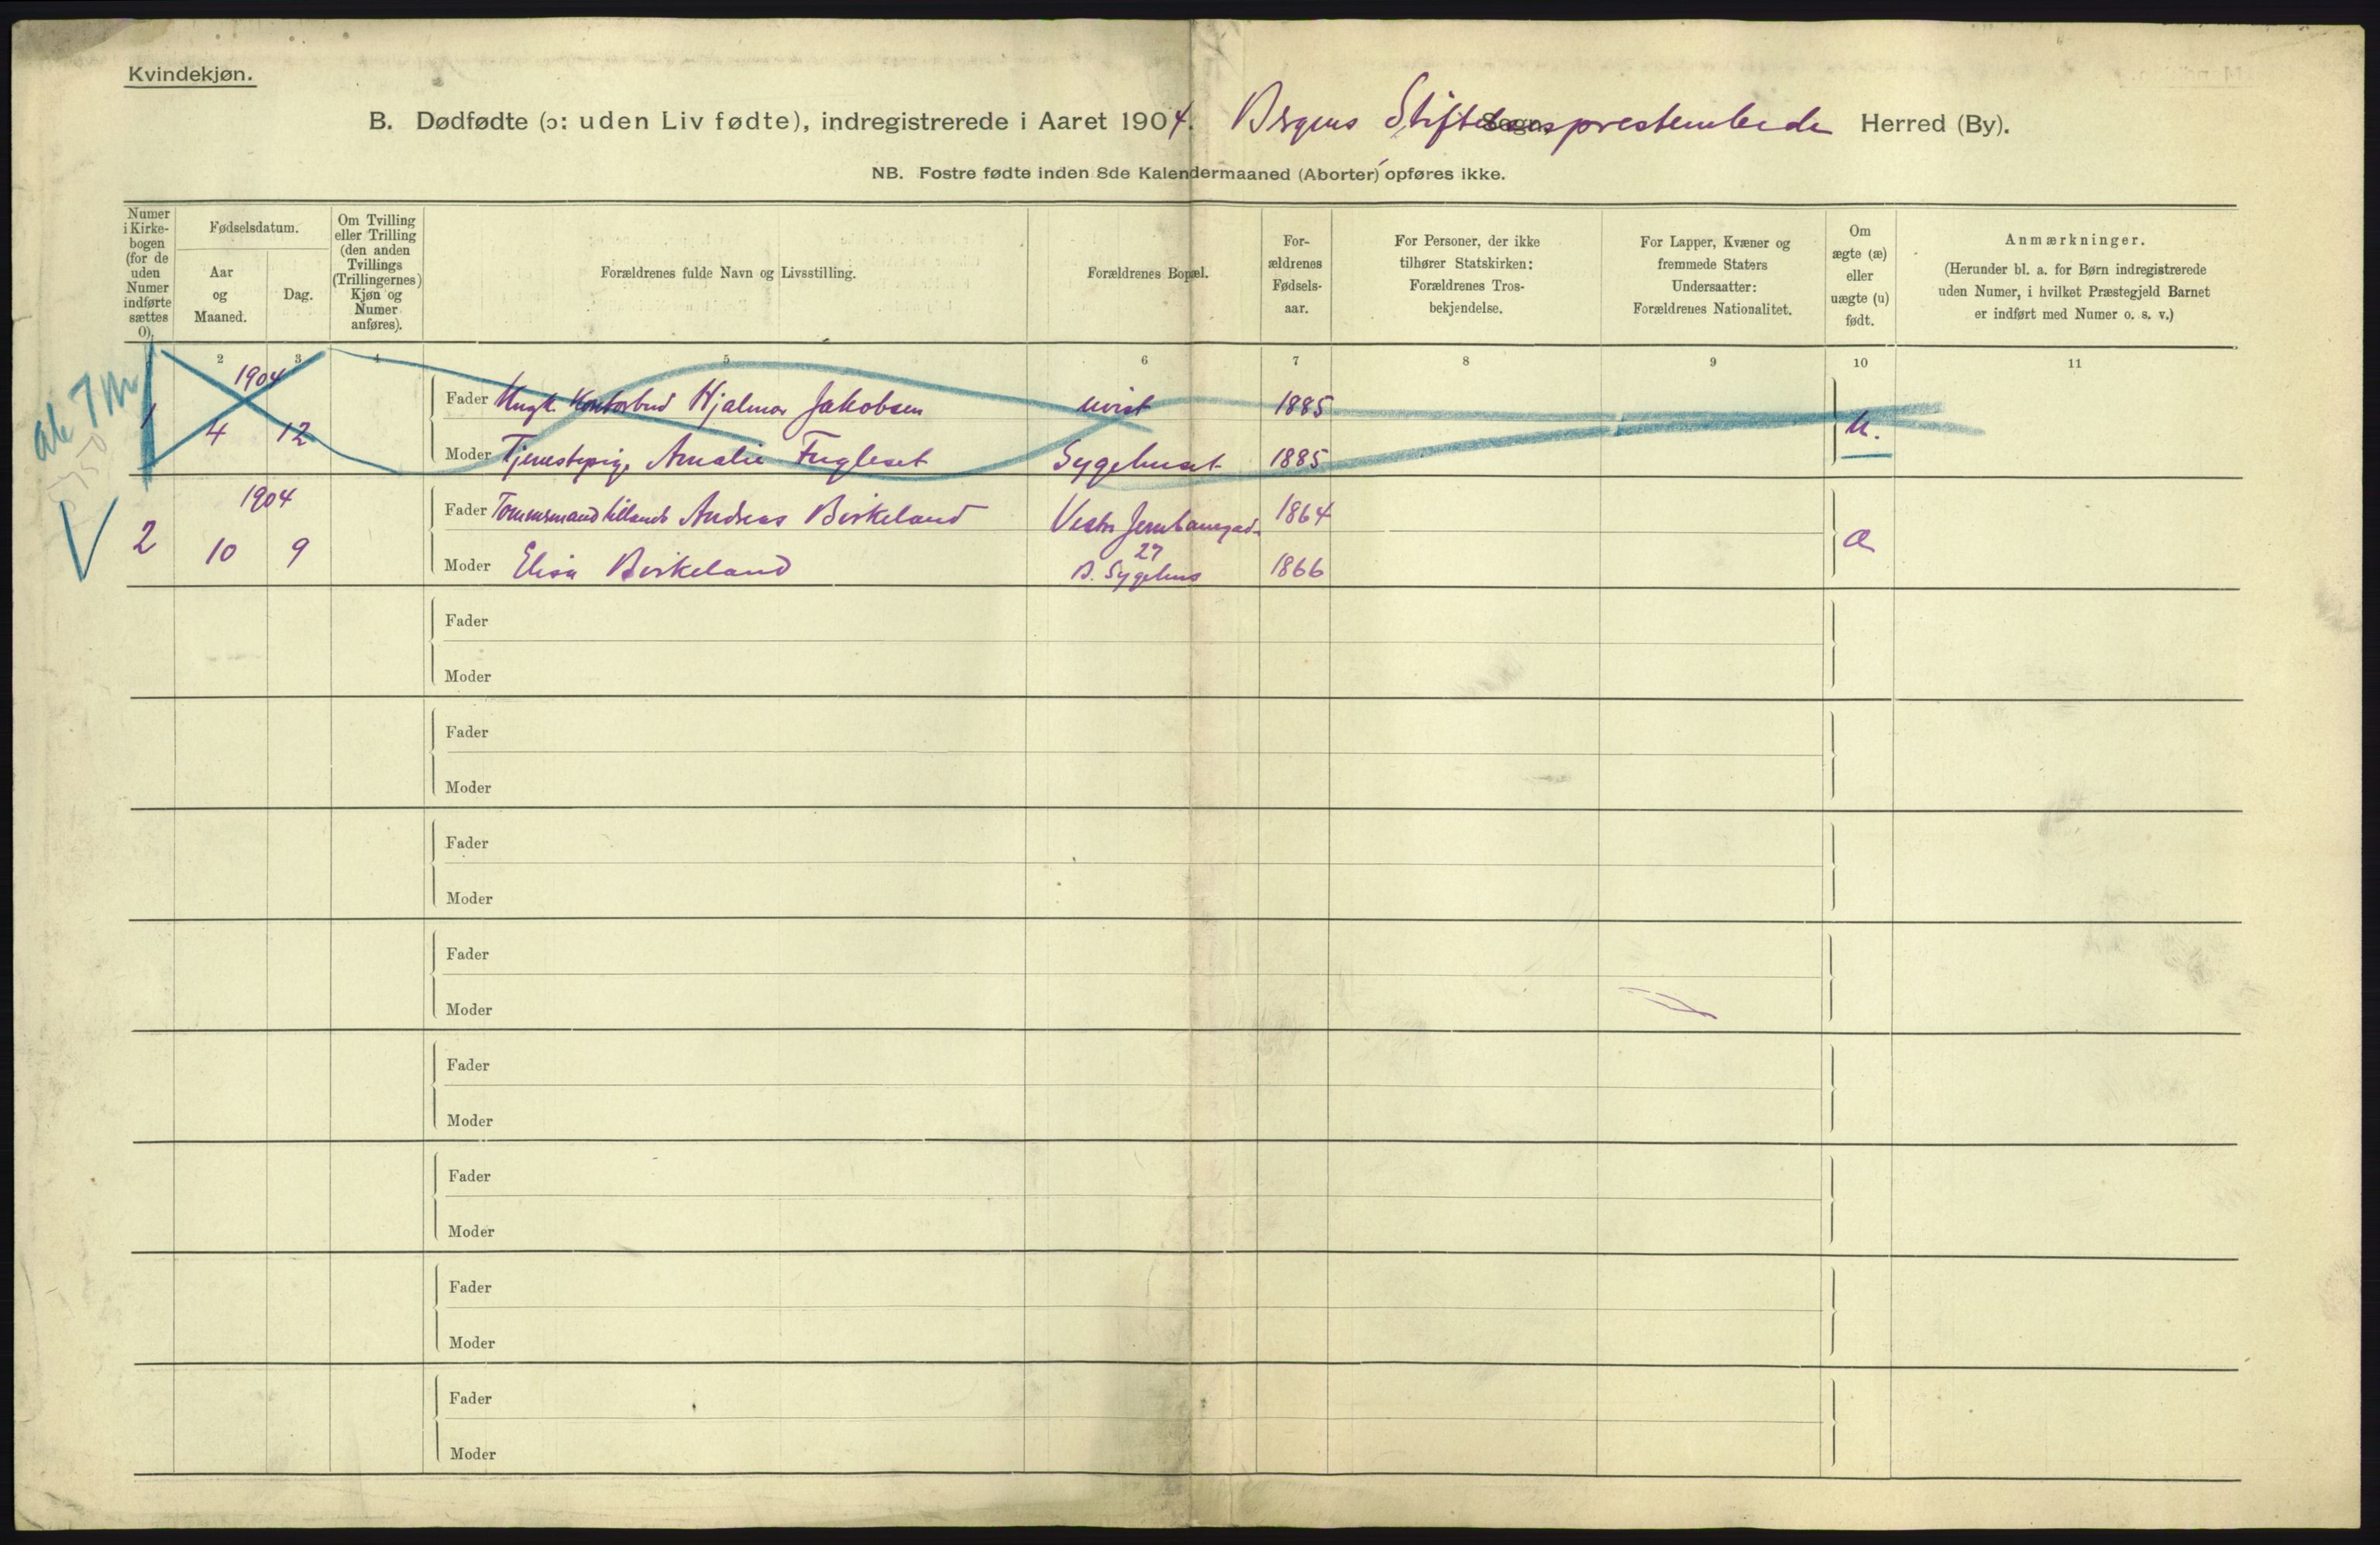 Kvindekjøn.
B. Dødfødte (ɔ: uden Liv fødte), indregistrerede i Aaret 1904. Bergens Stiftsprestembede Herred (By).
NB. Fostre fødte inden 8de Kalendermaaned (Aborter) opføres ikke.
Numer i Kirke-bogen (for de uden Numer indførte sættes 0).
Fødselsdatum.
Aar og Maaned.
Dag.
Om Tvilling eller Trilling (den anden Tvillings (Trillingernes) Kjøn og Numer anføres).
Forældrenes fulde Navn og Livsstilling.
Forældrenes Bopæl.
For-ældrenes Fødsels-aar.
For Personer, der ikke tilhører Statskirken: Forældrenes Tros-bekjendelse.
For Lapper, Kvæner og fremmede Staters Undersaatter: Forældrenes Nationalitet.
Om ægte (æ) eller uægte (u) født.
Anmærkninger.
(Herunder bl. a. for Børn indregistrerede uden Numer, i hvilket Præstegjeld Barnet er indført med Numer o. s. v.)
2 3 4 5 6 7 8 9 10 11
1904
Fader Ungk. Kontorbud Hjalmar Jakobsen uvist 1885
1 4 12 u.
Moder Tjenestepige Amalie Fugleset Sygehuset 1885
1904
Fader Andreas Birkeland Vestre 1864
2 10 9 27 æ
Moder Elisa Birkeland B. Sygehus 1866
Fader
Moder
Fader
Moder
Fader
Moder
Fader
Moder
Fader
Moder
Fader
Moder
Fader
Moder
Fader
Moder